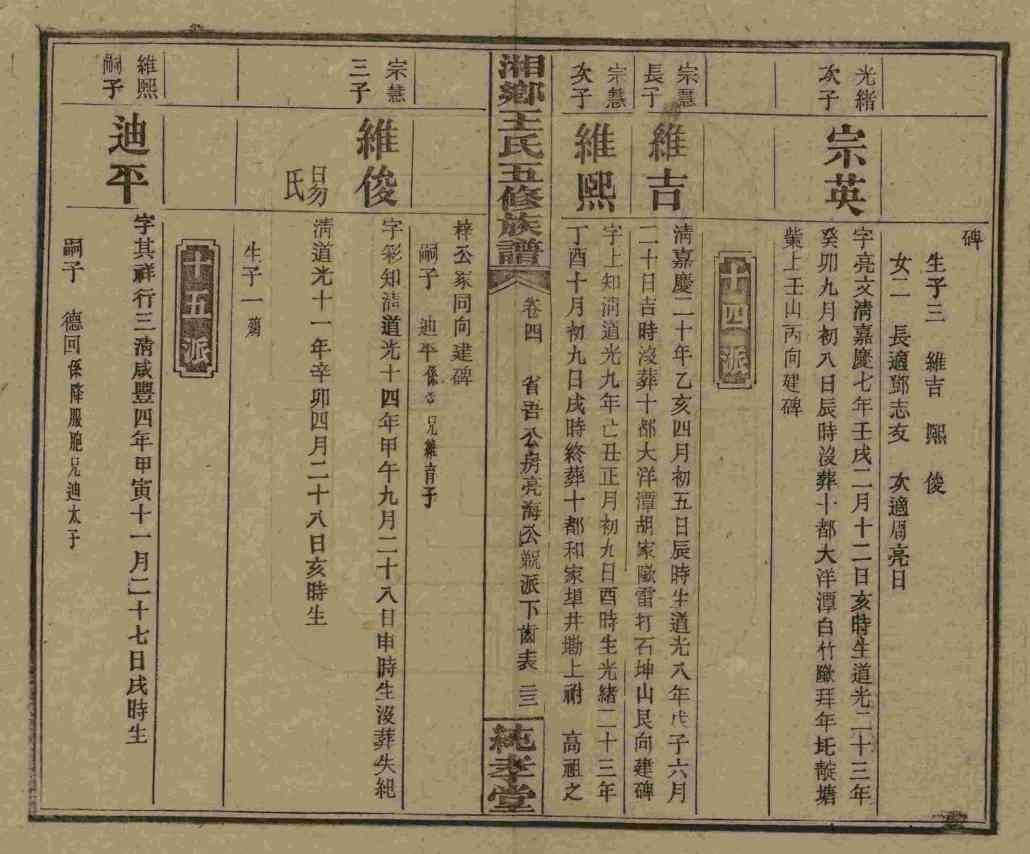 碑
生子三 維吉 熙 俊
女二 長適鄧志友 次適周亮日
光緒
次子
宗英
字亮文淸嘉慶七年壬戌二月十二日亥時生道光二十三年
癸卯九月初八日辰時沒葬十都大洋潭白竹歐拜年坵靛塘
紫上壬山丙向建碑
十四派
宗慧
長子
維吉
淸嘉慶二十年乙亥四月初五日辰時生道光八年戊子六月
二十日吉時沒葬十都大洋潭胡家歐雷打石坤山艮向建碑
宗慧
次子
維熙
字上知淸道光九年己丑正月初九日酉時生光緒二十三年
丁酉十月初九日戌時終葬十都和家埧井塝上祔 高祖之
湘鄉王氏五修族譜
卷四 省吾公房亮海公派下齒表 三三
純孝堂
梓公冢同向建碑
嗣子 迪平係 兄維吉子
宗慧
三子
維俊
字彩知淸道光十四年甲午九月二十八日申時生沒葬失紀
易氏
淸道光十一年辛卯四月二十八日亥時生
生子一 殤
十五派
維熙
嗣子
迪平
字其祥行三淸咸豐四年甲寅十一月二十七日戌時生
嗣子 德回係降服胞兄迪太子